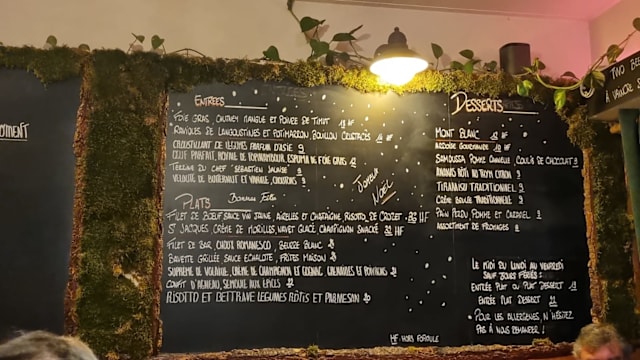 ENTREES
FOIE GRAS, CHUTNEY MANGUE ET POIVRE DE TIMUT
RAVIOLES DE LANGOUSTINES ET POTIMARRON, BOUILLON CRUSTACÉS HF
CROUSTILLANT DE LEGUMES PARFUM D'ASIE 9
OEUF PARFAIT, ROYALE DE POTIMARRON, ESPUMA DE FOIE GRAS
TERRINE DU CHEF "SEBASTIEN JALAISE" 9
VELOUTE DE BUTTERNUT ET VANILLE, CROUTONS 9
JOYEUX
NOËL
PLATS
BONNES Fêtes
FILET DE BOEUF SAUCE VIN JAUNE, AIRELLES ET CHATAIGNE, RISOTTO DE CROZET HF
ST JACQUES, CRÈME DE MORILLES, NAVET GLACÉ, CHAMPIGNON SNACKÉ HF
FILET DE BAR, CHOUX ROMANESCO, BEURRE BLANC
BAVETTE GRILLÉE SAUCE ECHALOTE, FRITES MAISON
SUPREME DE VOLAILLE, CRÈME DE CHAMPIGNON ET COGNAC, GRENAILLES ET POTIRONS
CONFIT D'AGNEAU, SEMOULE AUX EPICES
RISOTTO ET BETTRAVE LEGUMES RÔTIS ET PARMESAN
HF: HORS FORMULE
DESSERTS
MONT BLANC HF
ARDOISE GOURMANDE HF
SAMOUSSA POMME CANNELLE COULIS DE CHOCOLAT 9
ANANAS RÔTI AU THYM CITRON 9
TIRAMISU TRADITIONNEL 9
CRÈME BRULÉE TRADITIONNELLE 9
PAIN PERDU POMME ET CARAMEL 9
ASSORTIMENT DE FROMAGES 9
LE MIDI DU LUNDI AU VENDREDI
SAUF JOURS FÉRIÉS:
ENTRÉE PLAT OU PLAT DESSERT
ENTRÉE PLAT DESSERT
POUR LES ALLERGENES, N'HÉSITEZ
PAS À NOUS DEMANDER!
TWO BEE
À VALOIR